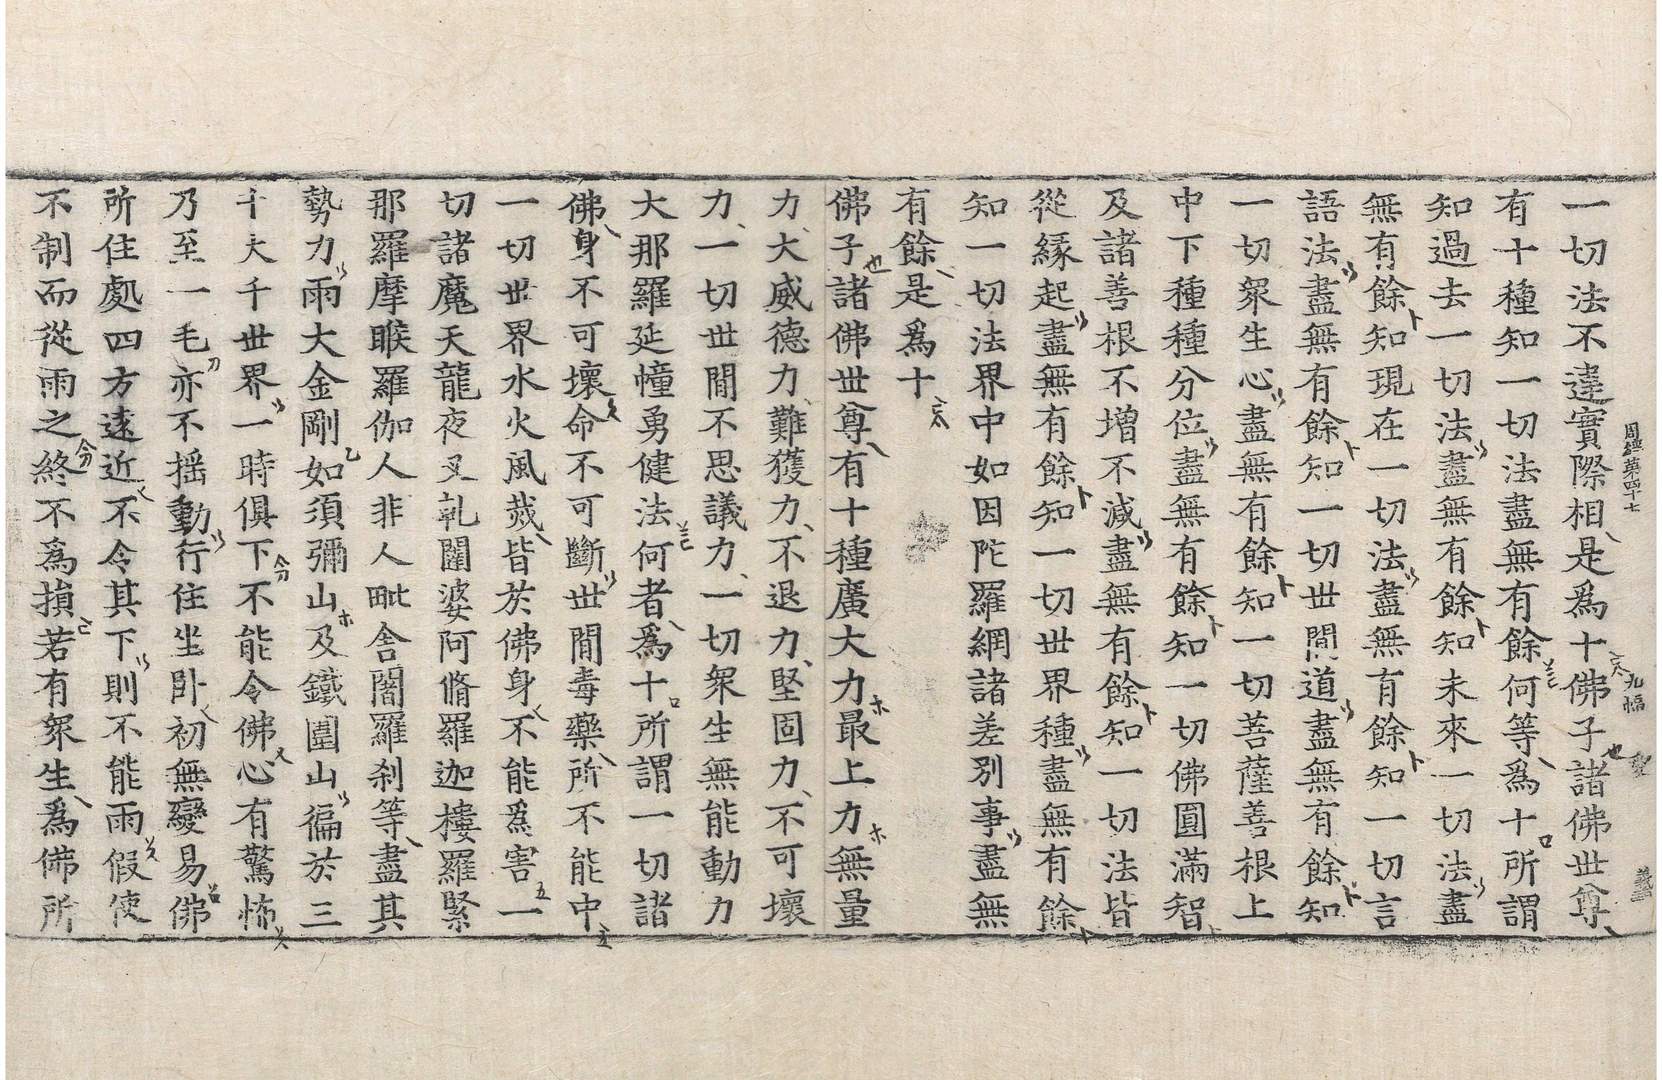 一切法不違實際相是為十佛子諸佛世尊
有十種知一切法盡無有餘何等為十所謂
知過去一切法盡無有餘知未來一切法盡
無有餘知現在一切法盡無有餘知一切言
語法盡無有餘知一切世間道盡無有餘知
一切眾生心盡無有餘知一切菩薩善根上
中下種種分位盡無有餘知一切佛圓滿智
及諸善根不增不減盡無有餘知一切法皆
從緣起盡無有餘知一切世界種盡無有餘
知一切法界中如因陀羅網諸差別事盡無
有餘是為十
佛子諸佛世尊有十種廣大力最上力無量
力大威德力難獲力不退力堅固力不可壞
力一切世間不思議力一切眾生無能動力
大那羅延幢勇健法何者為十所謂一切諸
佛身不可壞命不可斷世間毒藥所不能中
一切世界水火風災皆於佛身不能為害一
切諸魔天龍夜叉乹闥婆阿脩羅迦樓羅緊
那羅摩睺羅伽人非人毗舍闍羅刹等盡其
勢力雨大金剛如須彌山及鐵圍山徧於三
千大千世界一時俱下不能令佛心有驚怖
乃至一毛亦不搖動行住坐臥初無變易佛
所住處四方遠近不令其下則不能雨假使
不制而從雨之終不為損若有眾生為佛所